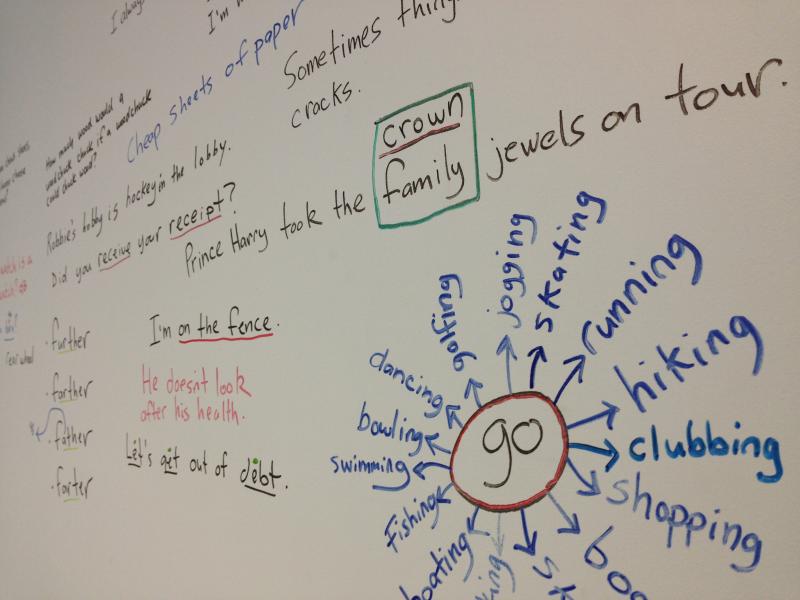 I always
I'm
Sometimes thing
cracks.
Cheap sheets of paper
How many wood would a
woodchuck chuck if a woodchuck
could chuck wood?
Robbie's hobby is hockey in the lobby.
Did you receive your receipt?
Prince Harry took the crown family jewels on tour.
further
farther
father
farter
I'm on the fence.
He doesn't look
after his health.
Let's get out of debt.
go
golfing
jogging
skating
running
hiking
clubbing
shopping
boating
fishing
swimming
bowling
dancing